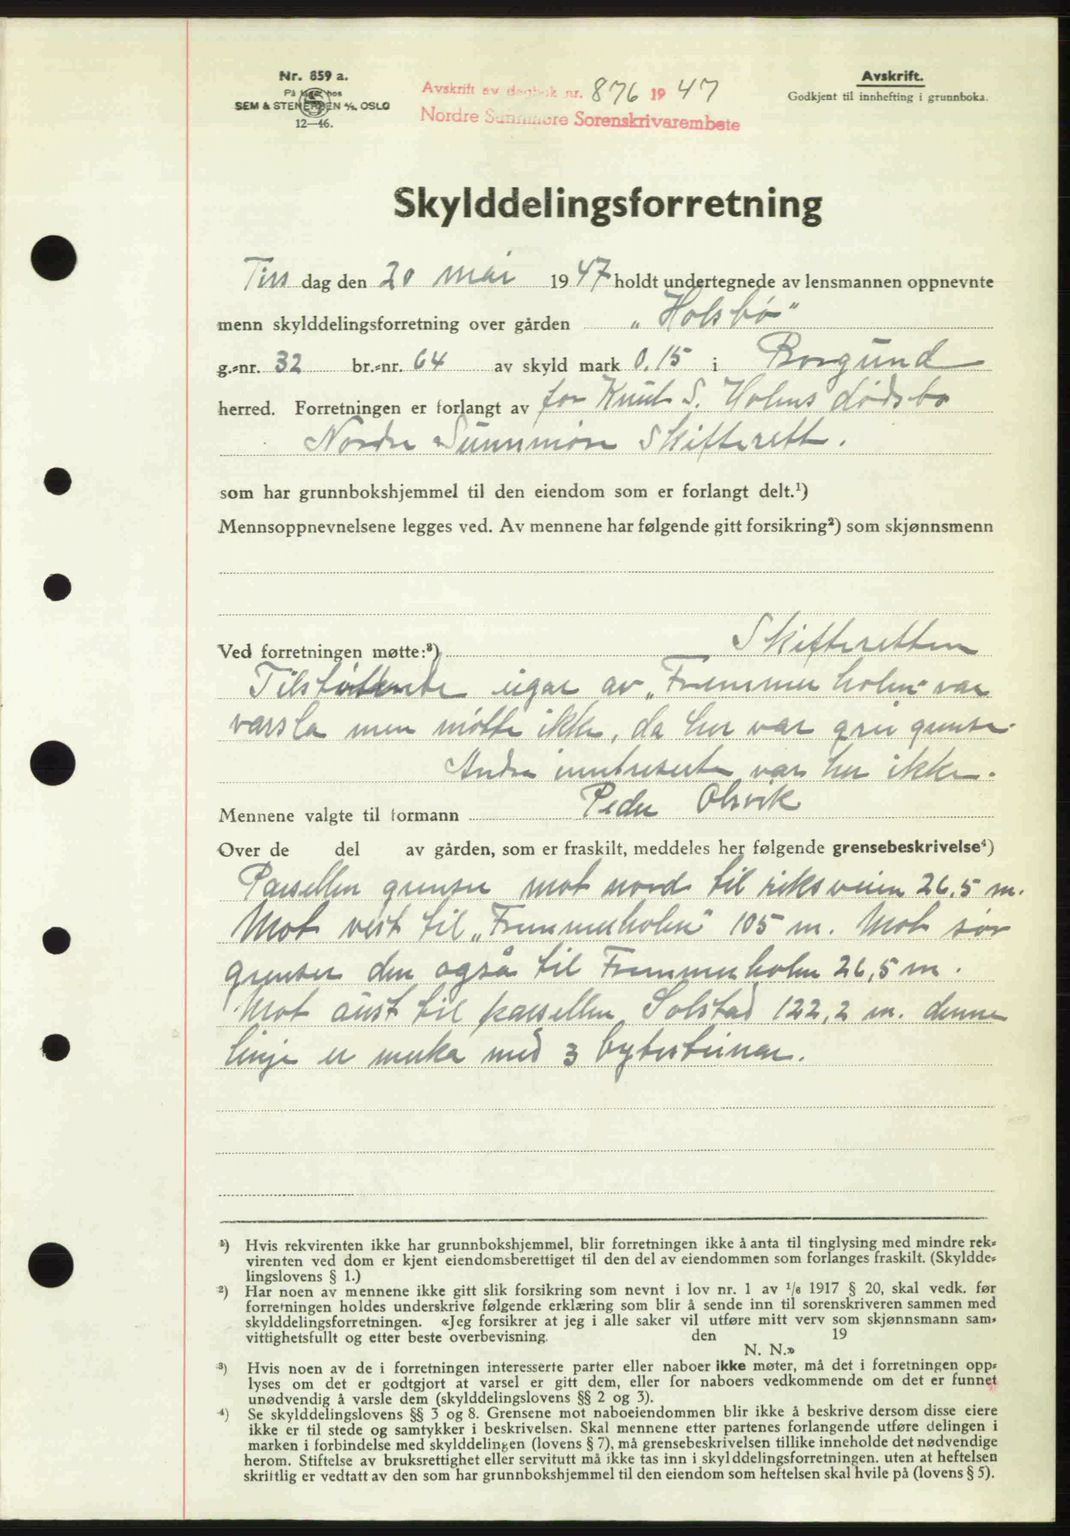 Nr. 859 a.
På lager hos
SEM & STENERSEN A/S, OSLO
12—46.
Avskrift av dagbok nr. 876 1947
Nordre Sunnmøre Sorenskrivarembete
Avskrift.
Godkjent til innhefting i grunnboka.
Skylddelingsforretning
Tirs dag den 20 mai 1947 holdt undertegnede av lensmannen oppnevnte
menn skylddelingsforretning over gården „Holsbø"
g.-nr. 32 br.-nr. 64 av skyld mark 0.15 i Borgund
herred. Forretningen er forlangt av for Knut S. Holms dødsbo
Nordre Sunnmøre Skifterett.
som har grunnbokshjemmel til den eiendom som er forlangt delt.¹)
Mennsoppnevnelsene legges ved. Av mennene har følgende gitt forsikring²) som skjønnsmenn
Ved forretningen møtte:³) Skifteretten
Tilstøttende eigar av „Fremmerholm" var
varsla men møtte ikke, da her var grei grense.
Andre inntreserte var her ikke.
Mennene valgte til formann Peder Olsvik
Over de del av gården, som er fraskilt, meddeles her følgende grensebeskrivelse⁴)
Parsellen grenser mot nord til riksveien 26,5 m.
Mot vest til „Fremmerholm" 105 m. Mot sør
grenser den også til Fremmerholm 26,5 m.
Mot aust til parsellen Solstad 122,2 m. denne
linje er merka med 3 bytesteinar.
¹) Hvis rekvirenten ikke har grunnbokshjemmel, blir forretningen ikke å anta til tinglysing med mindre rek-
virenten ved dom er kjent eiendomsberettiget til den del av eiendommen som forlanges fraskilt. (Skyldde-
lingslovens § 1.)
²) Har noen av mennene ikke gitt slik forsikring som nevnt i lov nr. 1 av ¹/₆ 1917 § 20, skal vedk. før
forretningen holdes underskrive følgende erklæring som blir å sende inn til sorenskriveren sammen med
skylddelingsforretningen. «Jeg forsikrer at jeg i alle saker vil utføre mitt verv som skjønnsmann sam-
vittighetsfullt og etter beste overbevisning. den 19
N. N.»
³) Hvis noen av de i forretningen interesserte parter eller naboer ikke møter, må det i forretningen opp-
lyses om det er godtgjort at varsel er gitt dem, eller for naboers vedkommende om det er funnet
unødvendig å varsle dem (skylddelingslovens §§ 2 og 3).
⁴) Se skylddelingslovens §§ 3 og 8. Grensene mot naboeiendommen blir ikke å beskrive dersom disse eiere
ikke er til stede og samtykker i beskrivelsen. Skal mennene etter partenes forlangende utføre delingen i
marken i forbindelse med skylddelingen (lovens § 7), må grensebeskrivelsen tillike inneholde det nødvendige
herom. Stiftelse av bruksrettighet eller servitutt må ikke tas inn i skylddelingsforretningen. uten at heftelsen
skriftlig er vedtatt av den som har grunnbokshjemmel til den eiendom som heftelsen skal hvile på (lovens § 5).